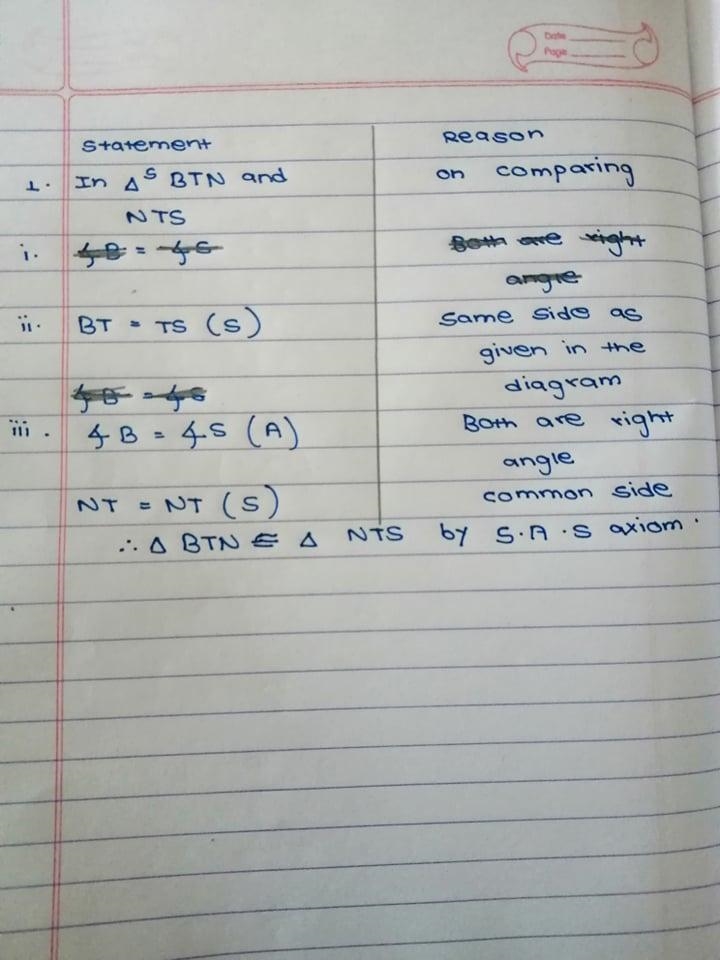 Date
Page
Statement Reason
1. In Δˢ BTN and on comparing
NTS
i. ∡B = ∡S Both are right
angle
ii. BT = TS (S) Same side as
given in the
∡B = ∡S diagram
iii. ∡B = ∡S (A) Both are right
angle
NT = NT (S) common side
∴ Δ BTN ≅ Δ NTS by S.A.S axiom.